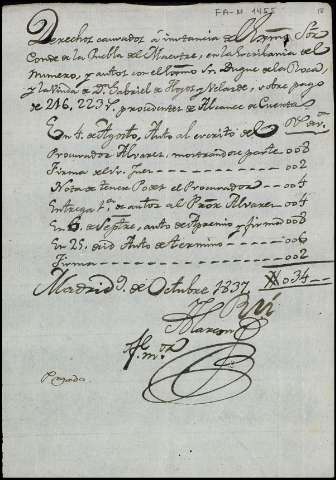 FA-M 1455
Derechos causados á instancia del Sor
Conde de la Puebla del Maestre, en la Escribania del
Numero, y autos con el Sr. Duque de la Roca,
y la Viuda de Dn. Gabriel de Hoyos y Velarde, sobre pago
de 216,223 r. procedentes de Alcance de Cuentas
En 4. de Agosto, Auto al escrito del
Procurador Alvarez, mostrandose parte 008
Firma del Sr. Juez 002
Nota de tener Poder el Procurador 004
Entrega de autos al Alvarez 004
En 6 de Sepre, auto de Apremio y firma 008
En 25. de id Auto de termino 006
Firma 002
034
Madrid 9. de Octubre 1837
Pagados